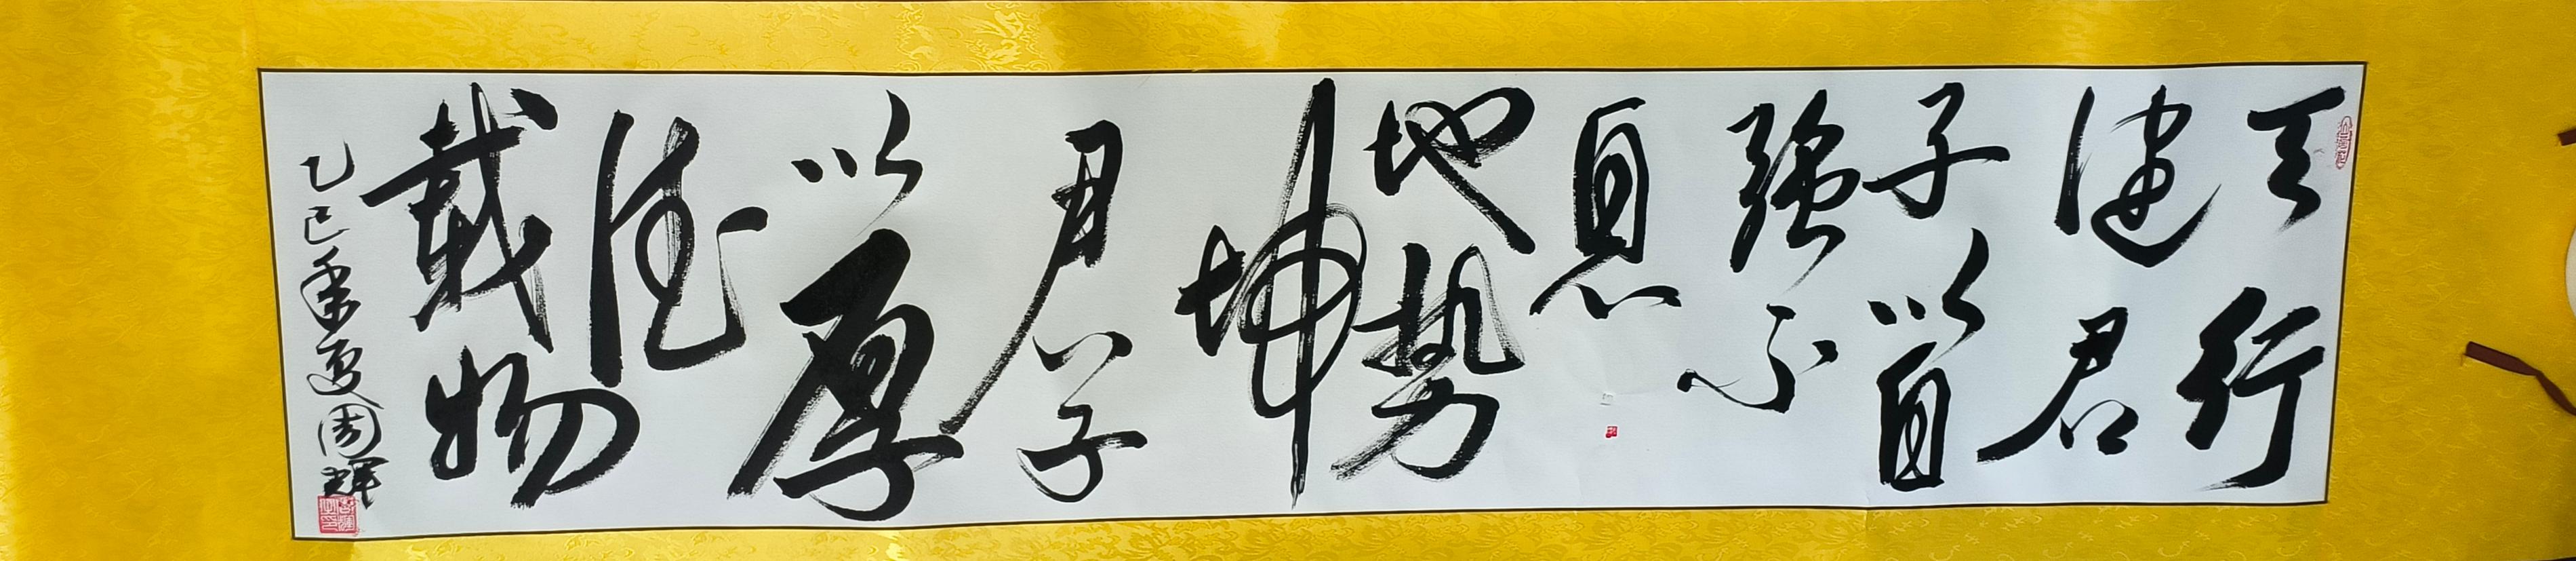 天行
健君
子以自
強不
息
地势
坤
君子
以厚
德
載物
乙巳年夏周輝